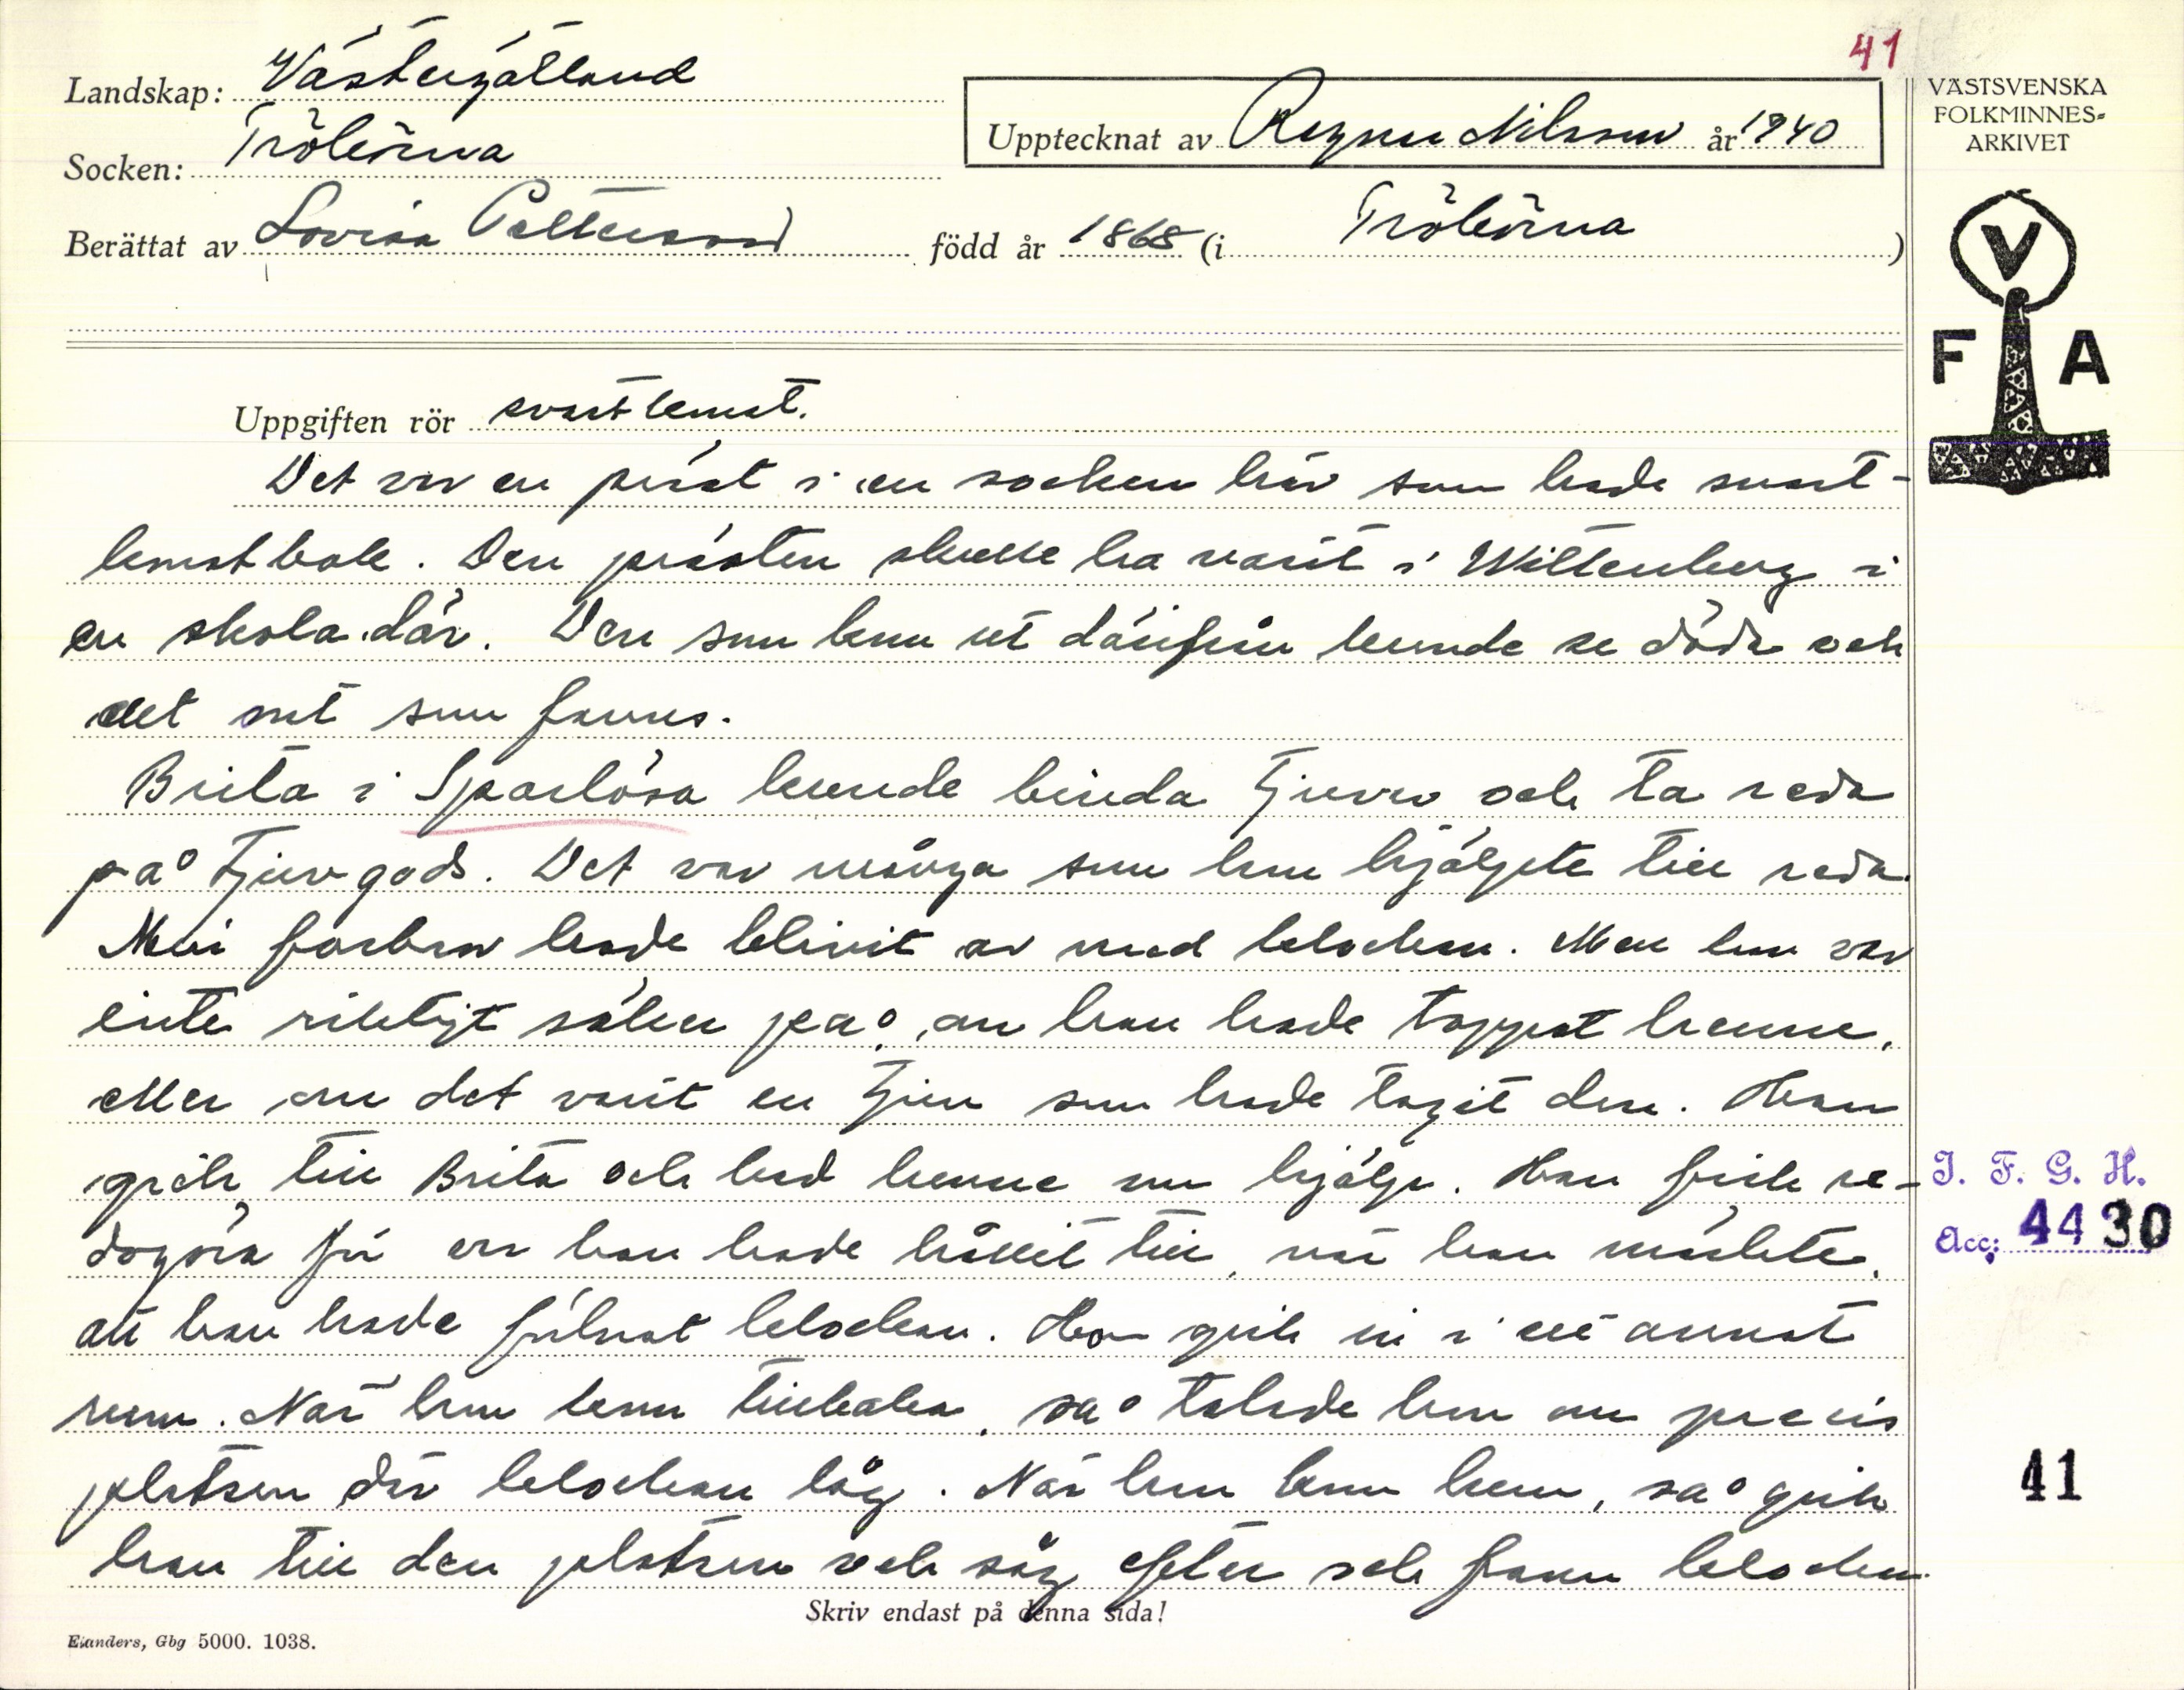 41
Landskap: Västergötland
Socken: Trökörna
Upptecknat av Ragnar Nilsson år 1940
Berättat av Lovisa Pettersson född år 1868 (i Trökörna)
VÄSTSVENSKA
FOLKMINNES=
ARKIVET
V
F A
Uppgiften rör svartkonst.
Det var en präst i en socken här som hade svart-
konstbok. Den prästen skulle ha varit i Wittenberg i
en skola där. Den som kom ut därifrån kunde se döda och
allt ont som fanns.
Brita i Sparlösa kunde binda tjuvar och ta reda
på tjuvgods. Det var många som hon hjälpte till reda.
Min farbror hade blivit av med klockan. Men han var
inte riktigt säker på, om han hade tappat henne,
eller om det varit en tjuv som hade tagit den. Han
gick till Brita och bad henne om hjälp. Han fick re-
dogöra för var han hade hållit till, när han märkte,
att han hade förlorat klockan. Hon gick in i ett annat
rum. När hon kom tillbaka, så talade hon om precis
platsen där klockan låg. När han kom hem, så gick
han till den platsen och såg efter och fann klockan.
Skriv endast på denna sida!
Elanders, Gbg 5000. 1038.
I. F. G. H.
Acc: 4430
41